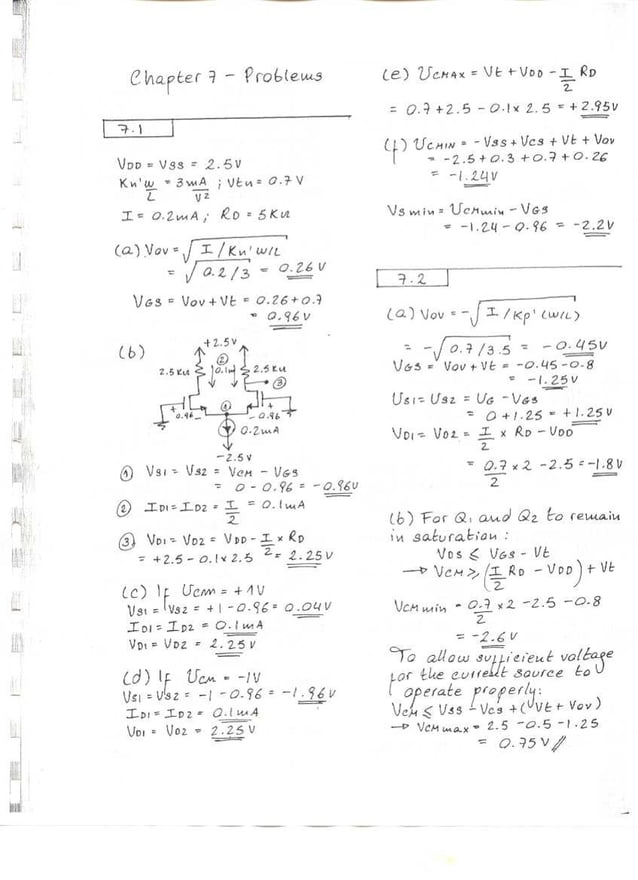 Chapter 7 - Problems
7.1
VDD = VSS = 2.5V
Kn' W/L = 3 mA/V² ; Vtn = 0.7 V
I = 0.2mA ; RD = 5KΩ
(a) VOV = √(I / Kn' W/L)
= √(0.2/3) = 0.26 V
VGS = VOV + Vt = 0.26+0.7
= 0.96V
(b)
+2.5V
2.5KΩ ② 0.1m 2.5KΩ
③
+ 0.96 - ① - 0.96 +
0.2mA
-2.5V
① VS1 = VS2 = VCM - VGS
= 0 - 0.96 = -0.96V
② ID1 = ID2 = I/2 = 0.1mA
③ VD1 = VD2 = VDD - I/2 × RD
= +2.5 - 0.1 × 2.5 = 2.25V
(c) If VCM = +1V
VS1 = VS2 = +1 - 0.96 = 0.04V
ID1 = ID2 = 0.1mA
VD1 = VD2 = 2.25V
(d) If VCM = -1V
VS1 = VS2 = -1 - 0.96 = -1.96V
ID1 = ID2 = 0.1mA
VD1 = VD2 = 2.25V
(e) VCMAX = Vt + VDD - I/2 RD
= 0.7 + 2.5 - 0.1 × 2.5 = +2.95V
(f) VCMIN = -VSS + VCS + Vt + VOV
= -2.5 + 0.3 + 0.7 + 0.26
= -1.24V
VSmin = VCMmin - VGS
= -1.24 - 0.96 = -2.2V
7.2
(a) VOV = -√(I / Kp' (W/L))
= -√(0.7/3.5) = -0.45V
VGS = VOV + Vt = -0.45 - 0.8
= -1.25V
VS1 = VS2 = VG - VGS
= 0 + 1.25 = +1.25V
VD1 = VD2 = I/2 × RD - VDD
= 0.7/2 × 2 - 2.5 = -1.8V
(b) For Q1 and Q2 to remain
in saturation :
VDS ≤ VGS - Vt
→ VCM ≥ (I/2 RD - VDD) + Vt
VCMmin = 0.7/2 × 2 - 2.5 - 0.8
= -2.6V
To allow sufficient voltage
for the current source to
operate properly:
VCM ≤ VSS - VCS + (Vt + VOV)
→ VCMmax = 2.5 - 0.5 - 1.25
= 0.75V //